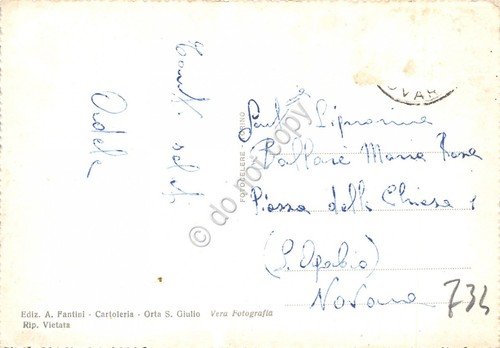 Tanti saluti
Adele
FOTOCELERE TORINO
OVAR
Gent. Signorina
Ballarè Maria Rosa
Piazza della Chiesa 1
(S. Agabio)
Novara
734
© do not copy
Ediz. A. Fantini - Cartoleria - Orta S. Giulio Vera Fotografia
Rip. Vietata